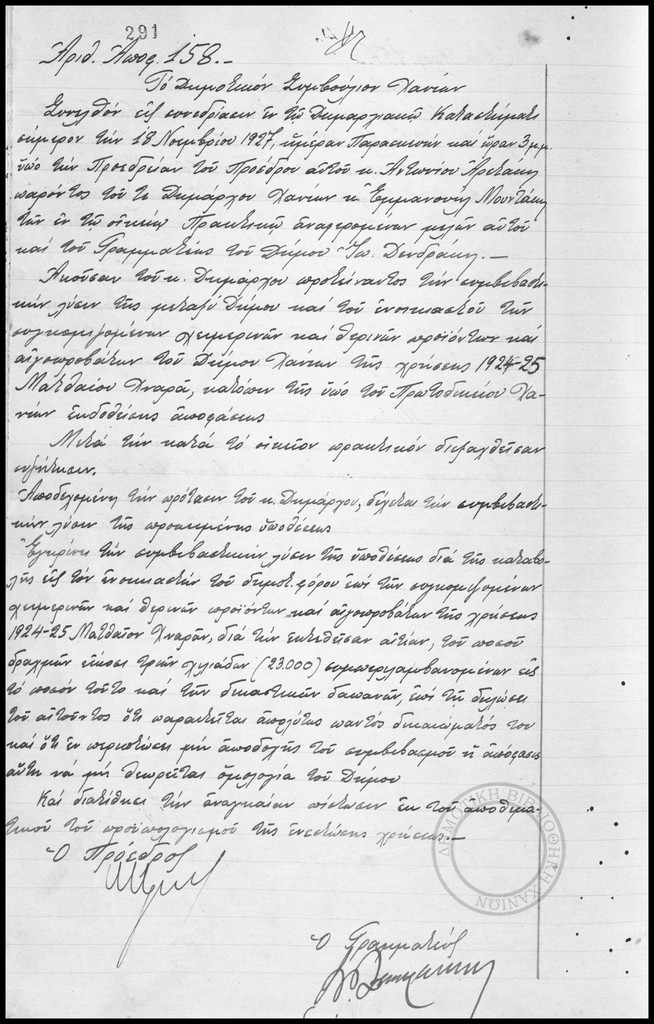 291
Ἀριθ. Ἀποφ. 158.-
Τό Δημοτικόν Συμβούλιον Χανίων
Συνελθόν εἰς συνεδρίασιν ἐν τῷ Δημαρχιακῷ Καταστήματι
σήμερον τήν 18 Νοεμβρίου 1927, ἡμέραν Παρασκευήν καί ὥραν 3 μ.μ.
ὑπό τήν Προεδρείαν τοῦ Προέδρου αὐτοῦ κ. Ἀντωνίου
παρόντος τοῦ τε Δημάρχου Χανίων κ. Ἐμμανουήλ Μουντάκη
τῶν ἐν τῷ οἰκείῳ Πρακτικῷ ἀναφερομένων μελῶν αὐτοῦ
καί τοῦ Γραμματέως τοῦ Δήμου Ἰω. Δενδράκη.-
Ἀκοῦσαν τοῦ κ. Δημάρχου προτείναντος τήν συμβιβαστι-
κήν λύσιν τῆς μεταξύ Δήμου καί τοῦ ἐνοικιαστοῦ τῶν
συγκομιζομένων χειμερινῶν καί θερινῶν προϊόντων καί
αἰγοπροβάτων τοῦ Δήμου Χανίων τῆς χρήσεως 1924-25
Ματθαίου Χναρᾶ, κατόπιν τῆς ὑπό τοῦ Πρωτοδικείου Χα-
νίων ἐκδοθείσης ἀποφάσεως
Μετά τήν κατά τό οἰκεῖον πρακτικόν διεξαχθεῖσαν
συζήτησιν.
Ἀποδεχόμενον τήν πρότασιν τοῦ κ. Δημάρχου, δέχεται τήν συμβιβαστι-
κήν λύσιν τῆς προκειμένης ὑποθέσεως
Ἐγκρίνει τήν συμβιβαστικήν λύσιν τῆς ὑποθέσεως διά τῆς καταβο-
λῆς εἰς τόν ἐνοικιαστήν τοῦ δημοτ. φόρου ἐπί τῶν συγκομιζομένων
χειμερινῶν καί θερινῶν προϊόντων καί αἰγοπροβάτων τῆς χρήσεως
1924-25 Ματθαῖον Χναρᾶν, διά τήν ἐκτεθεῖσαν αἰτίαν, τοῦ ποσοῦ
δραχμῶν εἴκοσι τριῶν χιλιάδων (23.000) συμπεριλαμβανομένων εἰς
τό ποσόν τοῦτο καί τῶν δικαστικῶν δαπανῶν, ἐπί τῇ δηλώσει
τοῦ αἰτοῦντος ὅτι παραιτεῖται ἀπολύτως παντός δικαιώματός του
καί ὅτι ἐν περιπτώσει μή ἀποδοχῆς τοῦ συμβιβασμοῦ ἡ ἀπόφασις
αὕτη νά μή θεωρεῖται ὁμολογία τοῦ Δήμου
Καί διατίθησι τήν ἀναγκαίαν πίστωσιν ἐκ τοῦ ἀποθεμα-
τικοῦ τοῦ προϋπολογισμοῦ τῆς ἐνεστώσης χρήσεως.-
Ὁ Πρόεδρος
Ὁ Γραμματεύς
ΔΗΜΟΤΙΚΗ ΒΙΒΛΙΟΘΗΚΗ ΧΑΝΙΩΝ